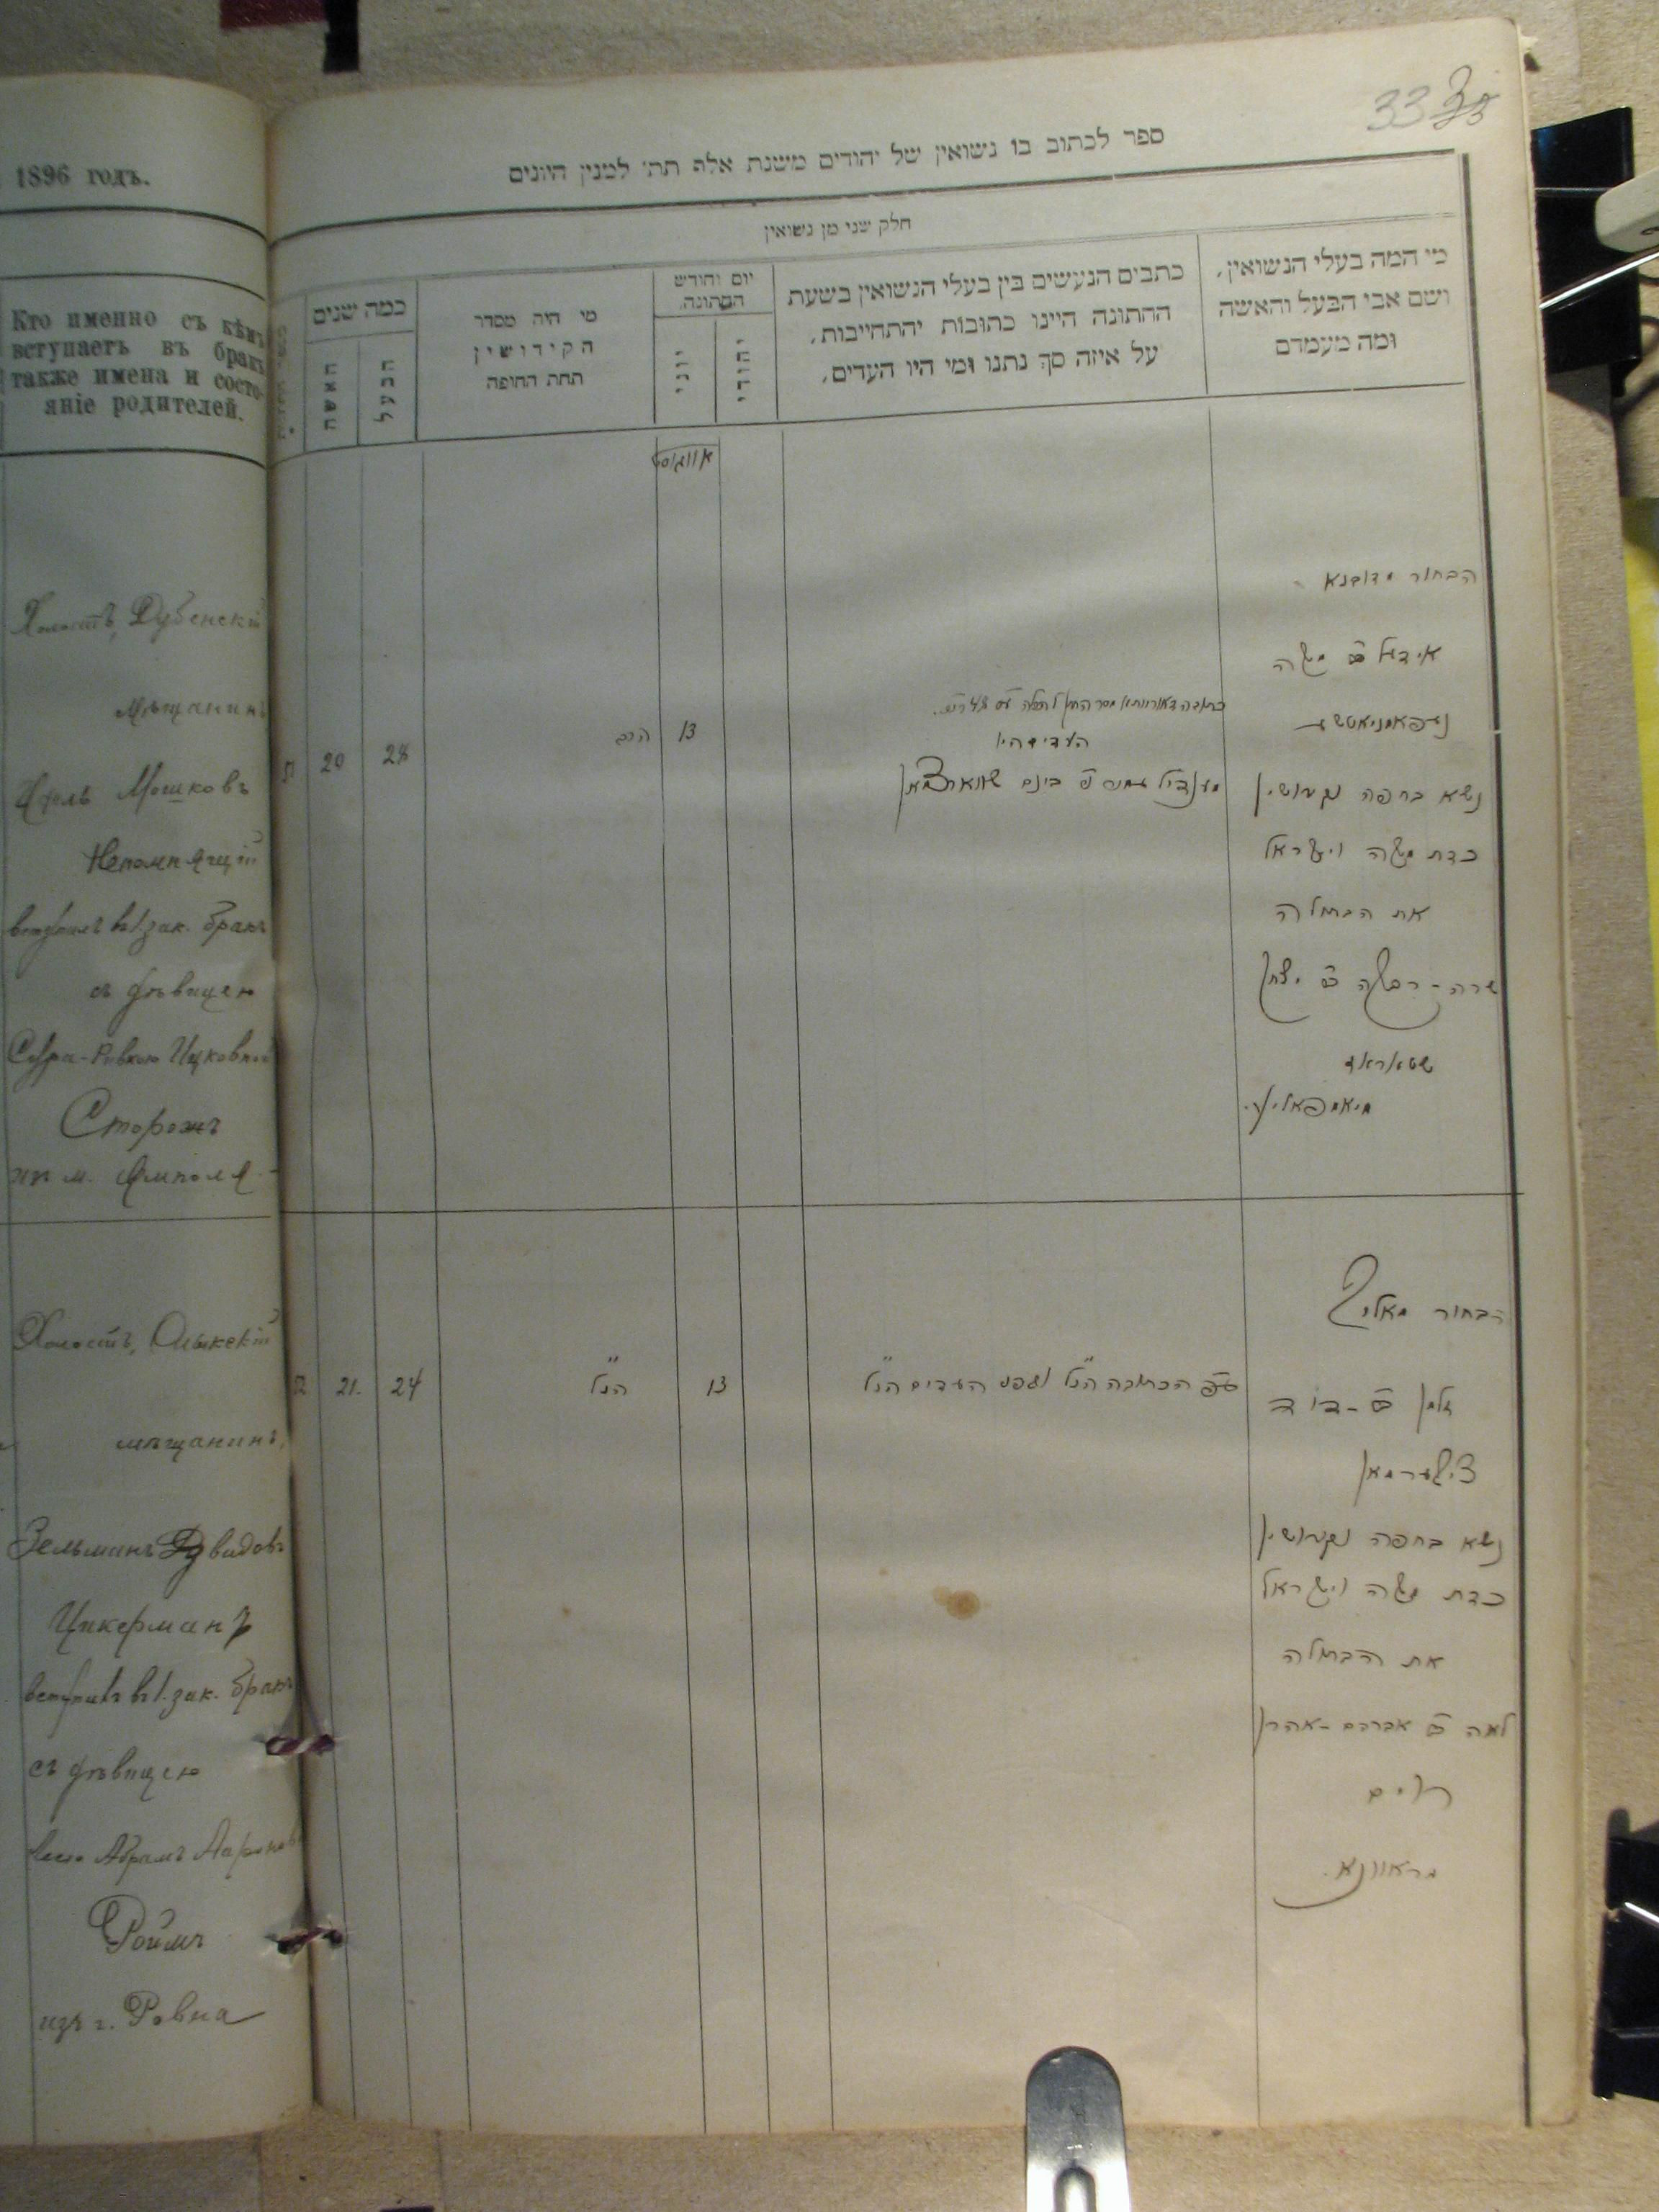 1896 годъ.
Кто именно съ кѣмъ
вступаетъ въ бракъ
также имена и состо-
яніе родителей.
Холостъ, Дубенскій
мѣщанинъ
Мошковъ
Непомнящій
вступилъ въ 1. зак. бракъ
съ дѣвицею
Сура-Ривкою Ицковной
Сторожъ
из м. Ямполя
Холостъ, Олыкскій
мѣщанинъ,
Зельманъ Давидовъ
Цикерманъ
вступилъ въ 1. зак. бракъ
съ дѣвицею
Абрамъ Аароновой
Роймъ
изъ г. Ровна
33
ספר לכתוב בו נשואין של יהודים משנת אלף תת׳ למנין היונים
חלק שני מן נשואין
מי המה בעלי הנשואין,
ושם אבי הבעל והאשה
ומה מעמדם
כתבים הנעשים בין בעלי הנשואין בשעת
החתונה היינו כתובות יהתחייבות,
על איזה סך נתנו ומי היו העדים,
יום וחודש
החתונה.
יהודי
יוני
מי היה מסדר
הקידושין
תחת החופה
כמה שנים
הבעל
האשה
אווגוסט
הבחור מדובנא
אידעל ב״ר משה
נעפאמניאטשע
נשא בחפה וקדושין
כדת משה וישראל
את הבתולה
שרה-רבקה ב״ר יצחק
שטאראז
מיאמפאליע.
העדים היו
13
הרב
28
20
הבחור מאליק
זלמן ב״ר-דוד
ציקערמאן
נשא בחפה וקדושין
כדת משה וישראל
את הבתולה
לאה ב״ר אברהם-אהרן
רוים
מראוונא.
הכתובה הנ״ל ובפני העדים הנ״ל
13
הנ״ל
24
21.